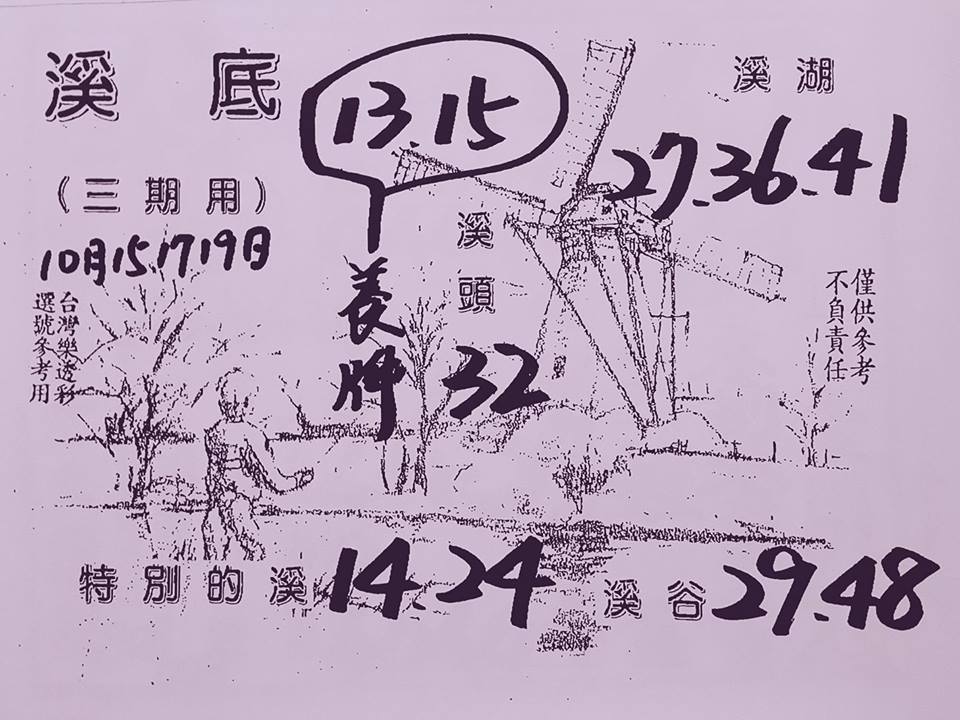 溪底
(三期用)
10月15.17.19日
台灣樂透彩
選號參考用
13.15
養牌
溪頭
32
溪湖
27.36.41
僅供參考
不負責任
特別的溪 14.24
溪谷 29.48